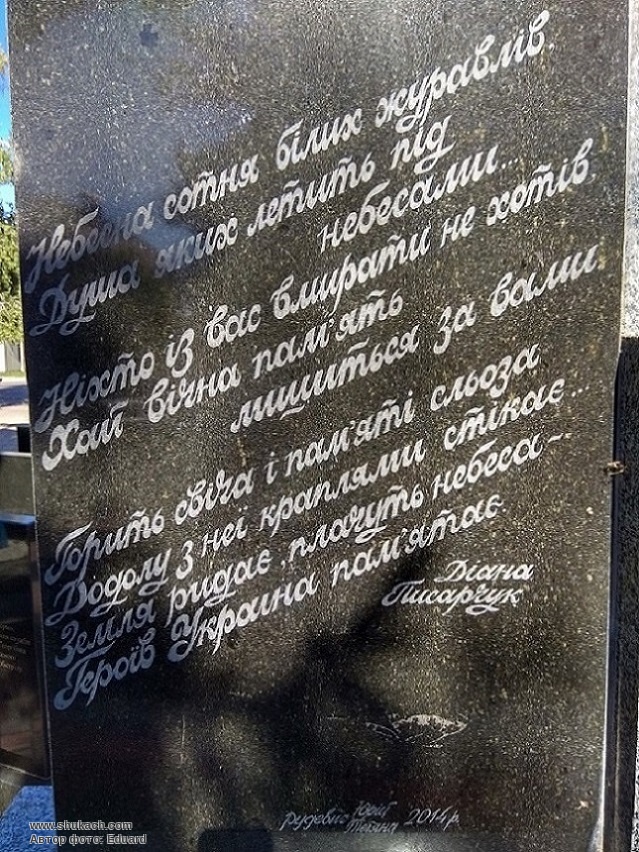 Небесна сотня білих журавлів,
Душа яких летить під
небесами...
Ніхто із вас вмирати не хотів.
Хай вічна пам'ять
лишиться за вами.
Горить свіча і пам'яті сльоза
Додолу з неї краплями стікає...
Земля ридає, плачуть небеса –
Героїв Україна пам'ятає.
Діана
Писарчук
2014 р.
www.shukach.com
Автор фото: Eduard